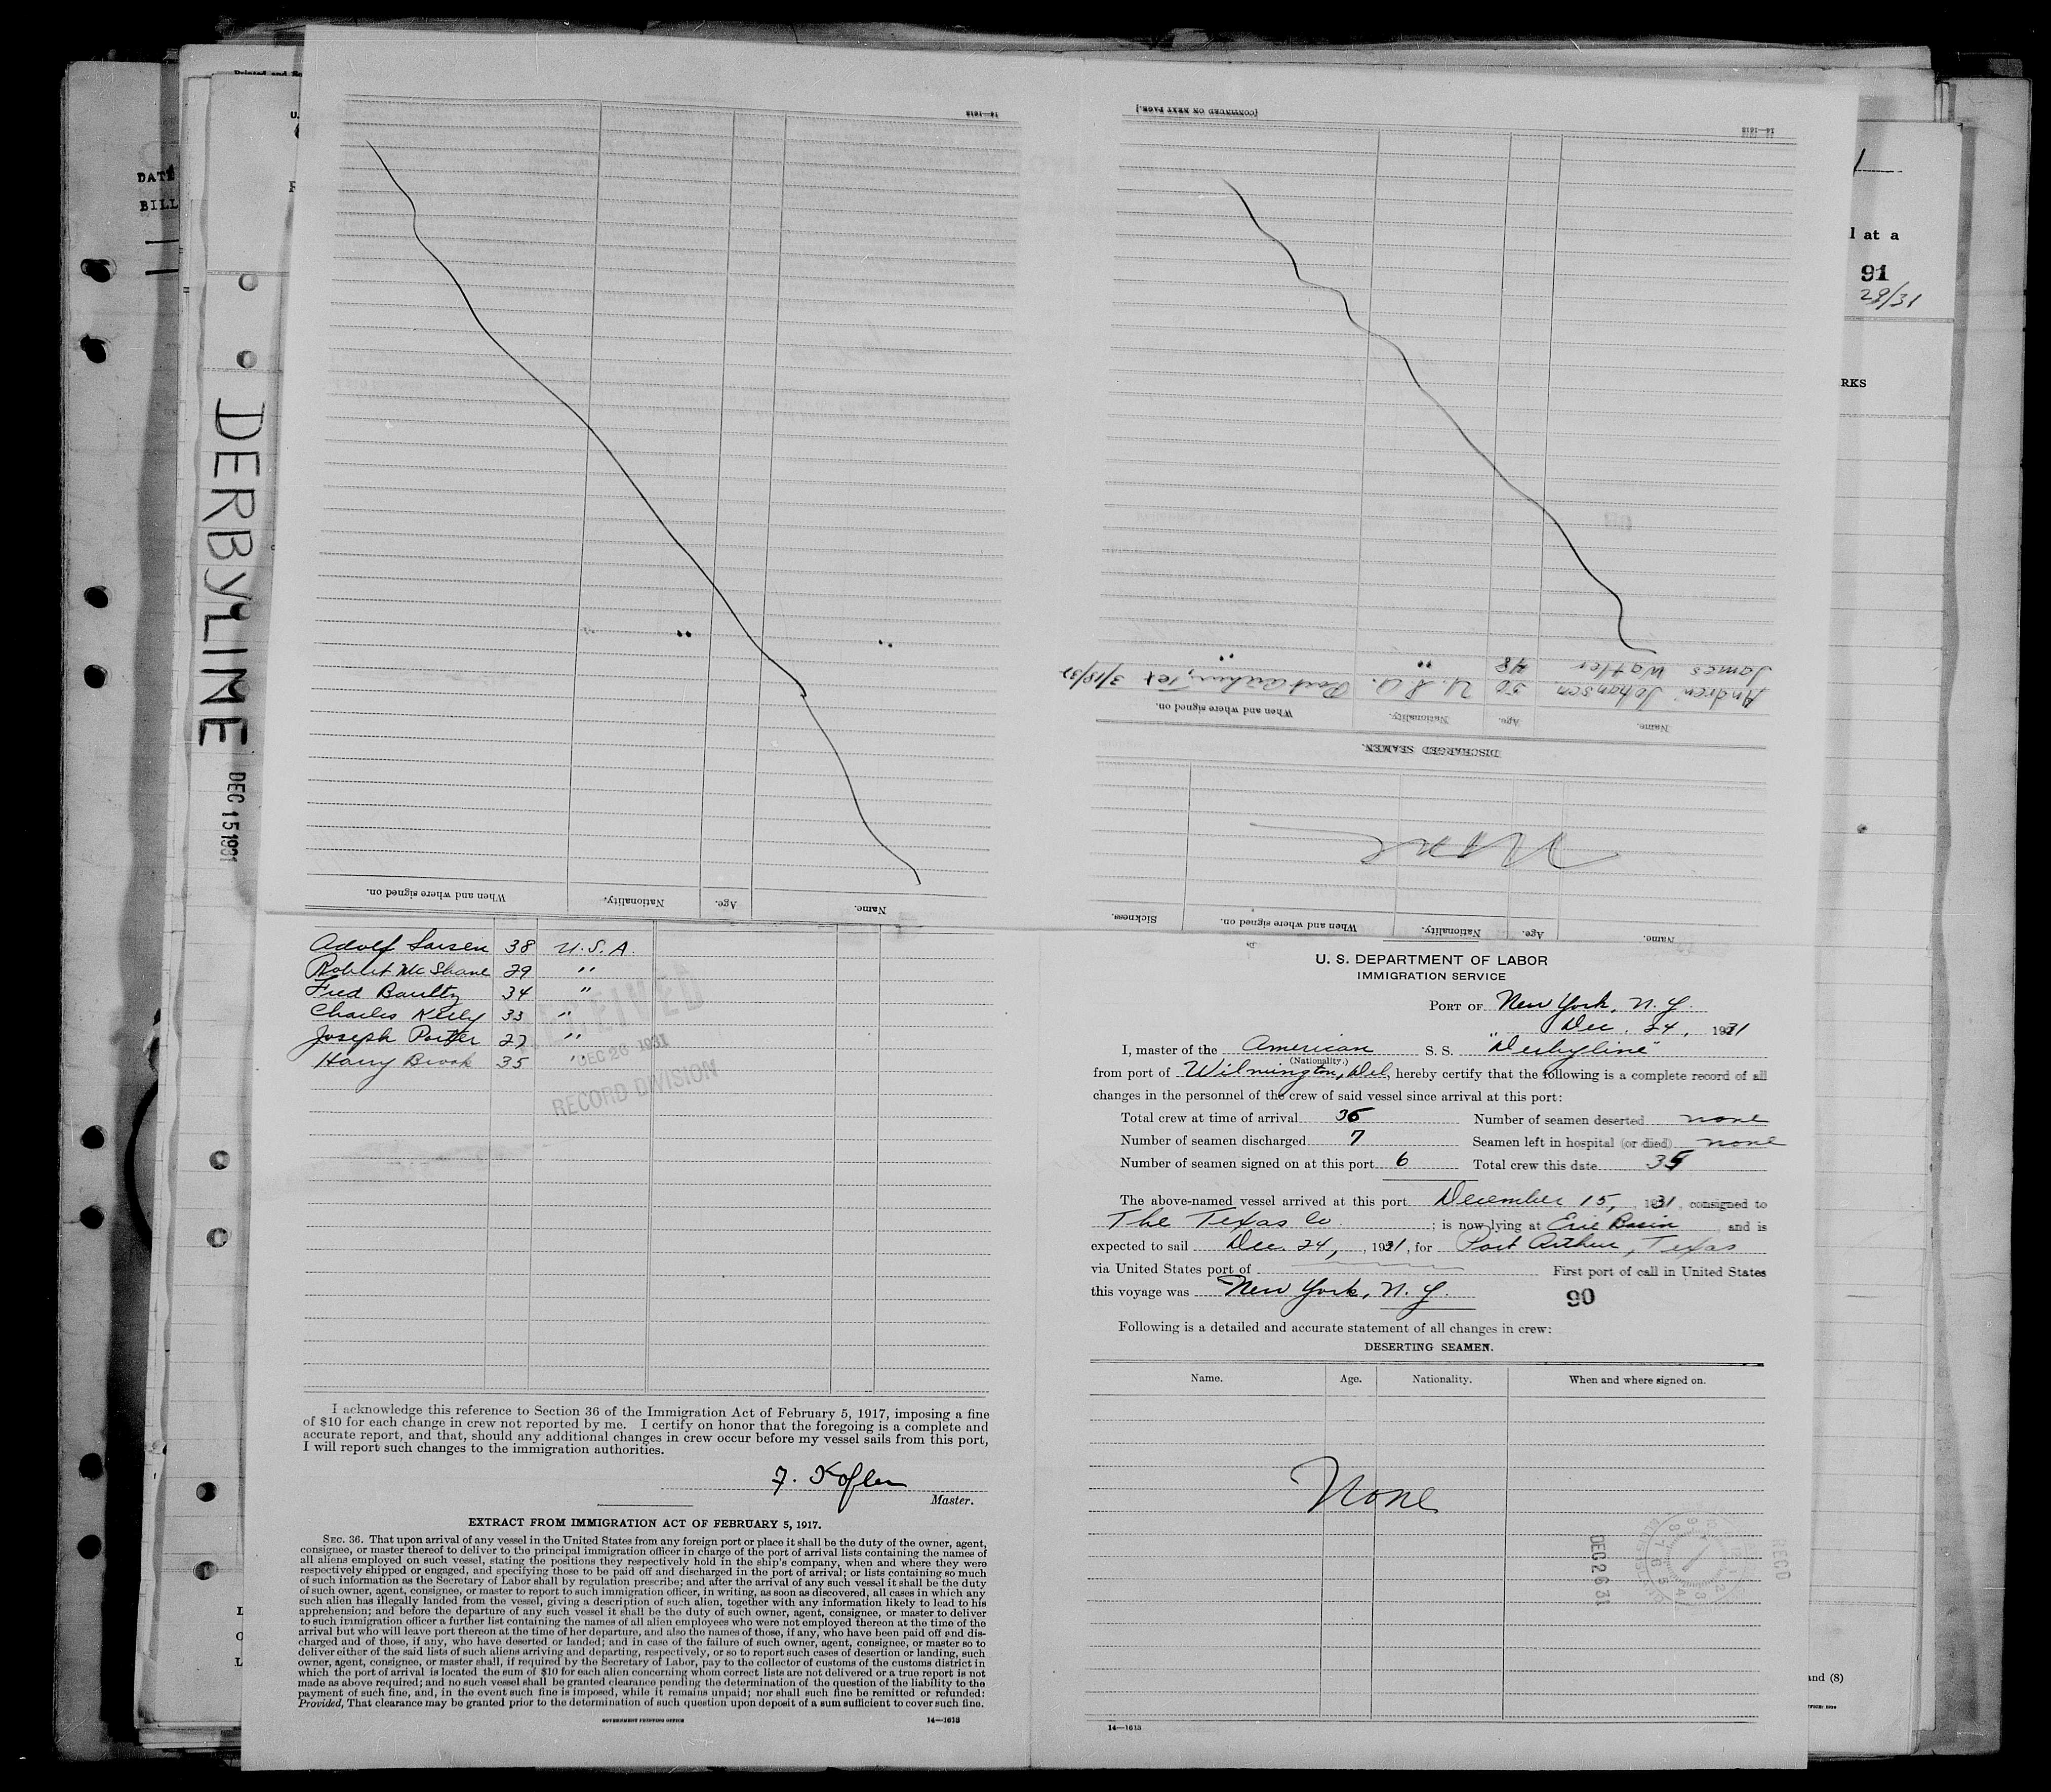 DATE
BILL
DERBYLINE
DEC 15 1931
l at a
91
29/31
RKS
and (8)
14—1613
Name. Age. Nationality. When and where signed on.
[CONTINUED ON NEXT PAGE.]
14—1613
Name. Age. Nationality. When and where signed on. Sickness.
None
DISCHARGED SEAMEN.
Name. Age. Nationality. When and where signed on.
Andrew Johanson 50 U.S.A. Port Arthur, Tex 3/18/31
James Watler 48 " "
Adolf Larsen 38 U.S.A.
Robert McShane 29 "
Fred Baultz 34 "
Charles Kelly 33 "
Joseph Porter 27 "
Harry Brook 35 "
RECEIVED
DEC 26 1931
RECORD DIVISION
I acknowledge this reference to Section 36 of the Immigration Act of February 5, 1917, imposing a fine
of $10 for each change in crew not reported by me. I certify on honor that the foregoing is a complete and
accurate report, and that, should any additional changes in crew occur before my vessel sails from this port,
I will report such changes to the immigration authorities.
F. Kofler
Master.
EXTRACT FROM IMMIGRATION ACT OF FEBRUARY 5, 1917.
SEC. 36. That upon arrival of any vessel in the United States from any foreign port or place it shall be the duty of the owner, agent,
consignee, or master thereof to deliver to the principal immigration officer in charge of the port of arrival lists containing the names of
all aliens employed on such vessel, stating the positions they respectively hold in the ship's company, when and where they were
respectively shipped or engaged, and specifying those to be paid off and discharged in the port of arrival; or lists containing so much
of such information as the Secretary of Labor shall by regulation prescribe; and after the arrival of any such vessel it shall be the duty
of such owner, agent, consignee, or master to report to such immigration officer, in writing, as soon as discovered, all cases in which any
such alien has illegally landed from the vessel, giving a description of such alien, together with any information likely to lead to his
apprehension; and before the departure of any such vessel it shall be the duty of such owner, agent, consignee, or master to deliver
to such immigration officer a further list containing the names of all alien employees who were not employed thereon at the time of the
arrival but who will leave port thereon at the time of her departure, and also the names of those, if any, who have been paid off and dis-
charged and of those, if any, who have deserted or landed; and in case of the failure of such owner, agent, consignee, or master so to
deliver either of the said lists of such aliens arriving and departing, respectively, or so to report such cases of desertion or landing, such
owner, agent, consignee, or master shall, if required by the Secretary of Labor, pay to the collector of customs of the customs district in
which the port of arrival is located the sum of $10 for each alien concerning whom correct lists are not delivered or a true report is not
made as above required; and no such vessel shall be granted clearance pending the determination of the question of the liability to the
payment of such fine, and, in the event such fine is imposed, while it remains unpaid; nor shall such fine be remitted or refunded:
Provided, That clearance may be granted prior to the determination of such question upon deposit of a sum sufficient to cover such fine.
GOVERNMENT PRINTING OFFICE
14—1613
U. S. DEPARTMENT OF LABOR
IMMIGRATION SERVICE
PORT OF New York, N.Y.
Dec. 24, 1931
I, master of the American S. S. "Derbyline"
(Nationality.)
from port of Wilmington, Del, hereby certify that the following is a complete record of all
changes in the personnel of the crew of said vessel since arrival at this port:
Total crew at time of arrival 36 Number of seamen deserted none
Number of seamen discharged 7 Seamen left in hospital (or died) none
Number of seamen signed on at this port 6 Total crew this date 35
The above-named vessel arrived at this port December 15, 1931, consigned to
The Texas Co. ; is now lying at Erie Basin and is
expected to sail Dec. 24, 1931, for Port Arthur, Texas
via United States port of First port of call in United States
this voyage was New York, N.Y.
90
Following is a detailed and accurate statement of all changes in crew:
DESERTING SEAMEN.
Name. Age. Nationality. When and where signed on.
None
DEC 26 31
REC'D
14—1613